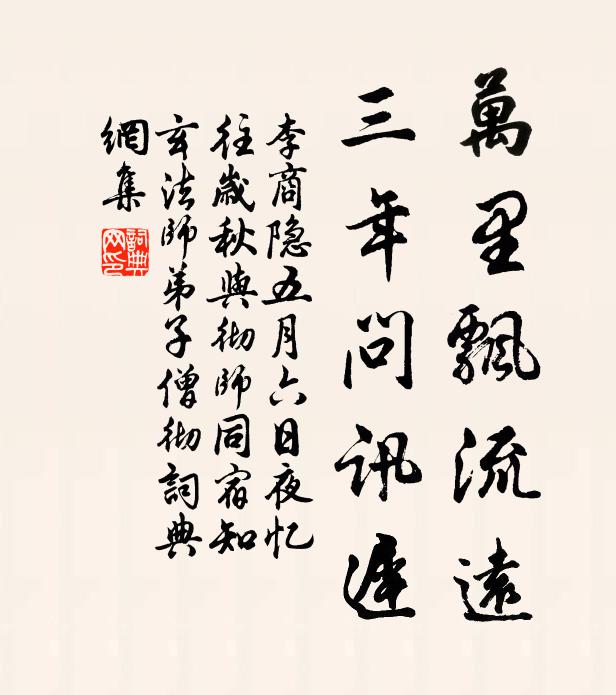 萬里飄流遠
三年問訊遲
李商隐五月六日夜忆
往歲秋與彻師同宿知
玄法師弟子僧彻詞典
網集
詞典网印